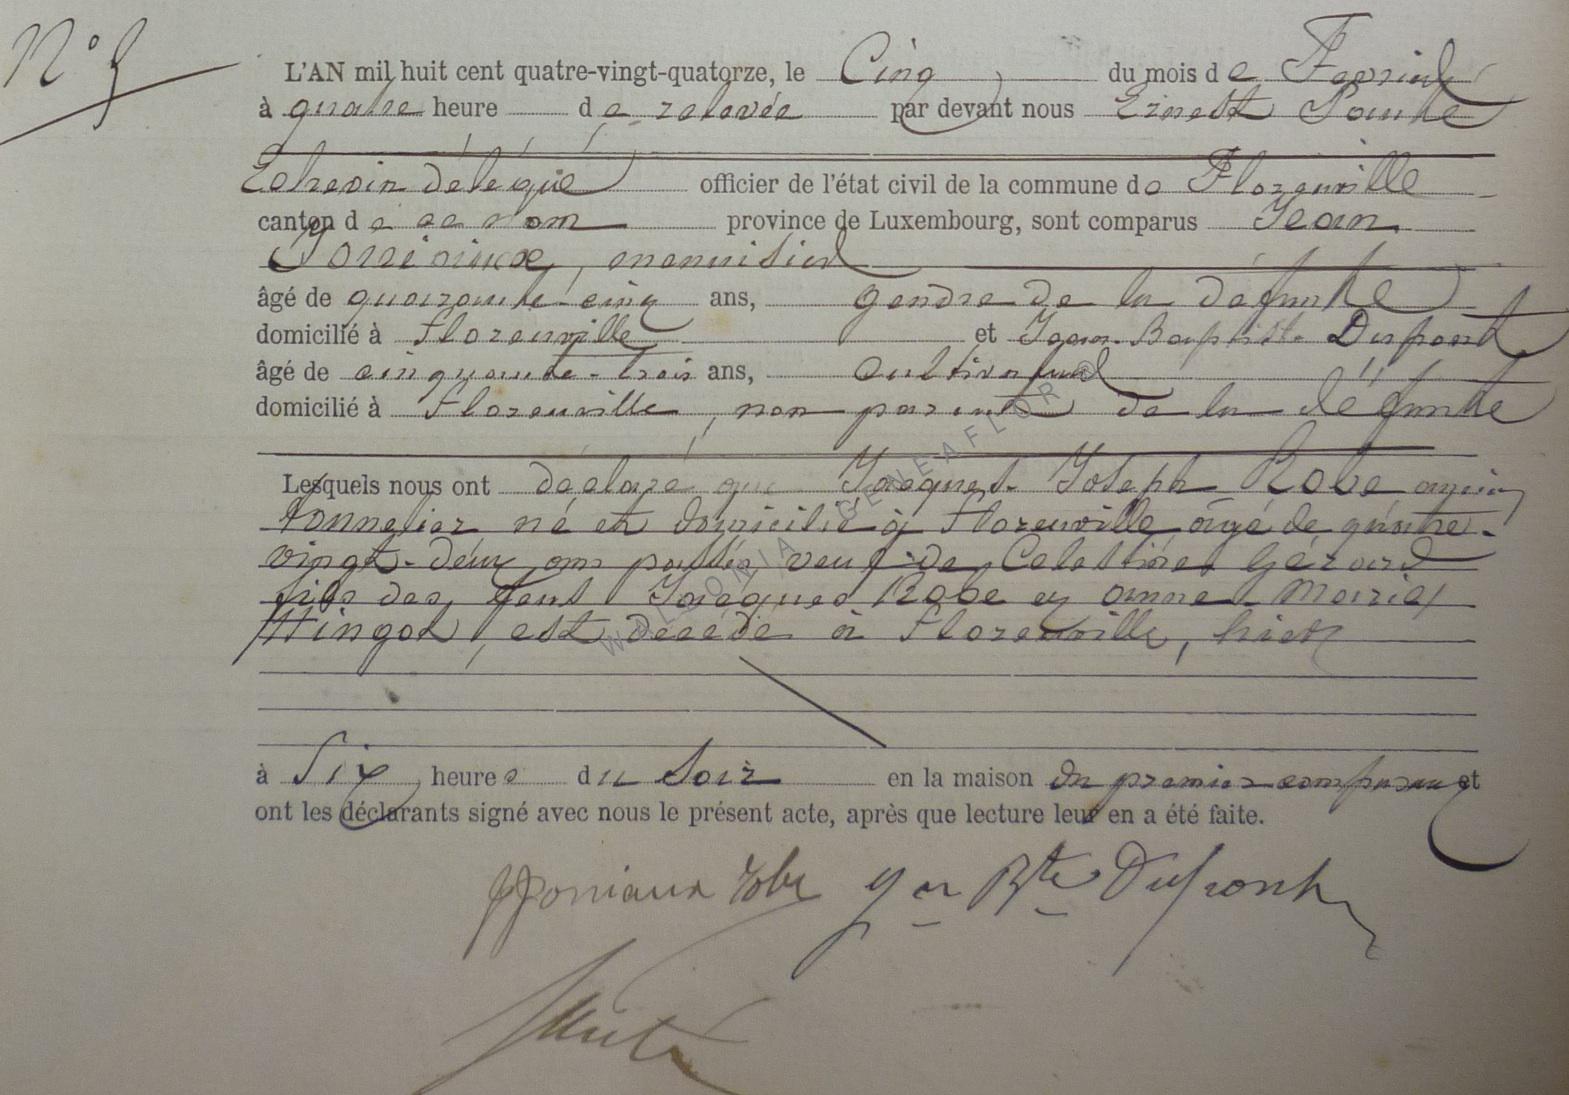 N° 5
L'AN mil huit cent quatre-vingt-quatorze, le Cinq du mois de Fevrier
à quatre heure de relevée par devant nous Ernest Santé
Echevin délégué officier de l'état civil de la commune de Florenville
canton de ce nom province de Luxembourg, sont comparus Jean
menuisier
âgé de quarante-cinq ans, gendre de la défunte
domicilié à Florenville et Jean-Baptiste Dupont
âgé de cinquante-trois ans, cultivateur
domicilié à Florenville, non parent de la défunte
Lesquels nous ont déclaré que Jacques-Joseph Robe ancien
tonnelier né et domicilié à Florenville âgé de quatre-
vingt-deux ans passés veuf de Celestine Gérard
fils des feus Jacques Robe et Anne-Marie
Hingot, est décédé à Florenville, hier
à six heures du soir en la maison du premier comparant et
ont les déclarants signé avec nous le présent acte, après que lecture leur en a été faite.
Jn Bte Dupont
Santé
WALLONIA GENEAFLOR ©